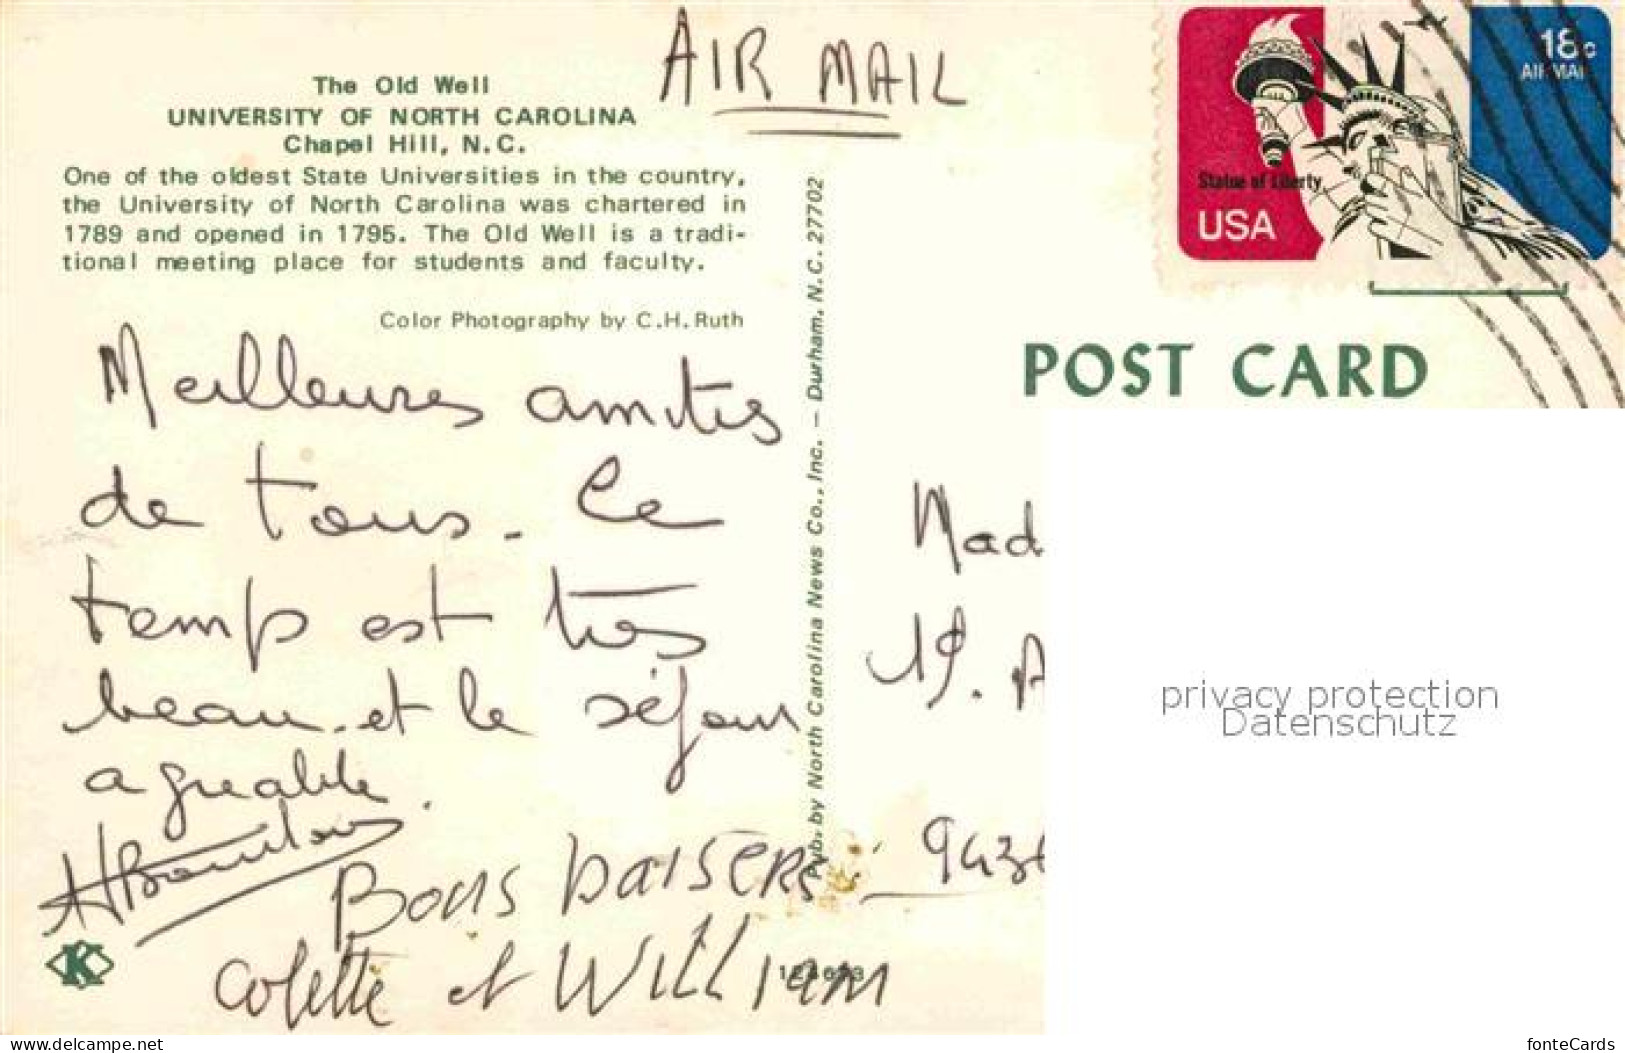 AIR MAIL
18c
AIR MAIL
Statue of Liberty
USA
The Old Well
UNIVERSITY OF NORTH CAROLINA
Chapel Hill, N.C.
One of the oldest State Universities in the country,
the University of North Carolina was chartered in
1789 and opened in 1795. The Old Well is a tradi-
tional meeting place for students and faculty.
Color Photography by C.H. Ruth
Meilleures amitiés
de tous. Le
temps est très
beau et le séjour
agréable.
Bons baisers
Colette et William
K
Pub. by North Carolina News Co., Inc. — Durham, N.C. 27702
POST CARD
Mad
19. A
943
privacy protection
Datenschutz
www.delcampe.net
fonteCards